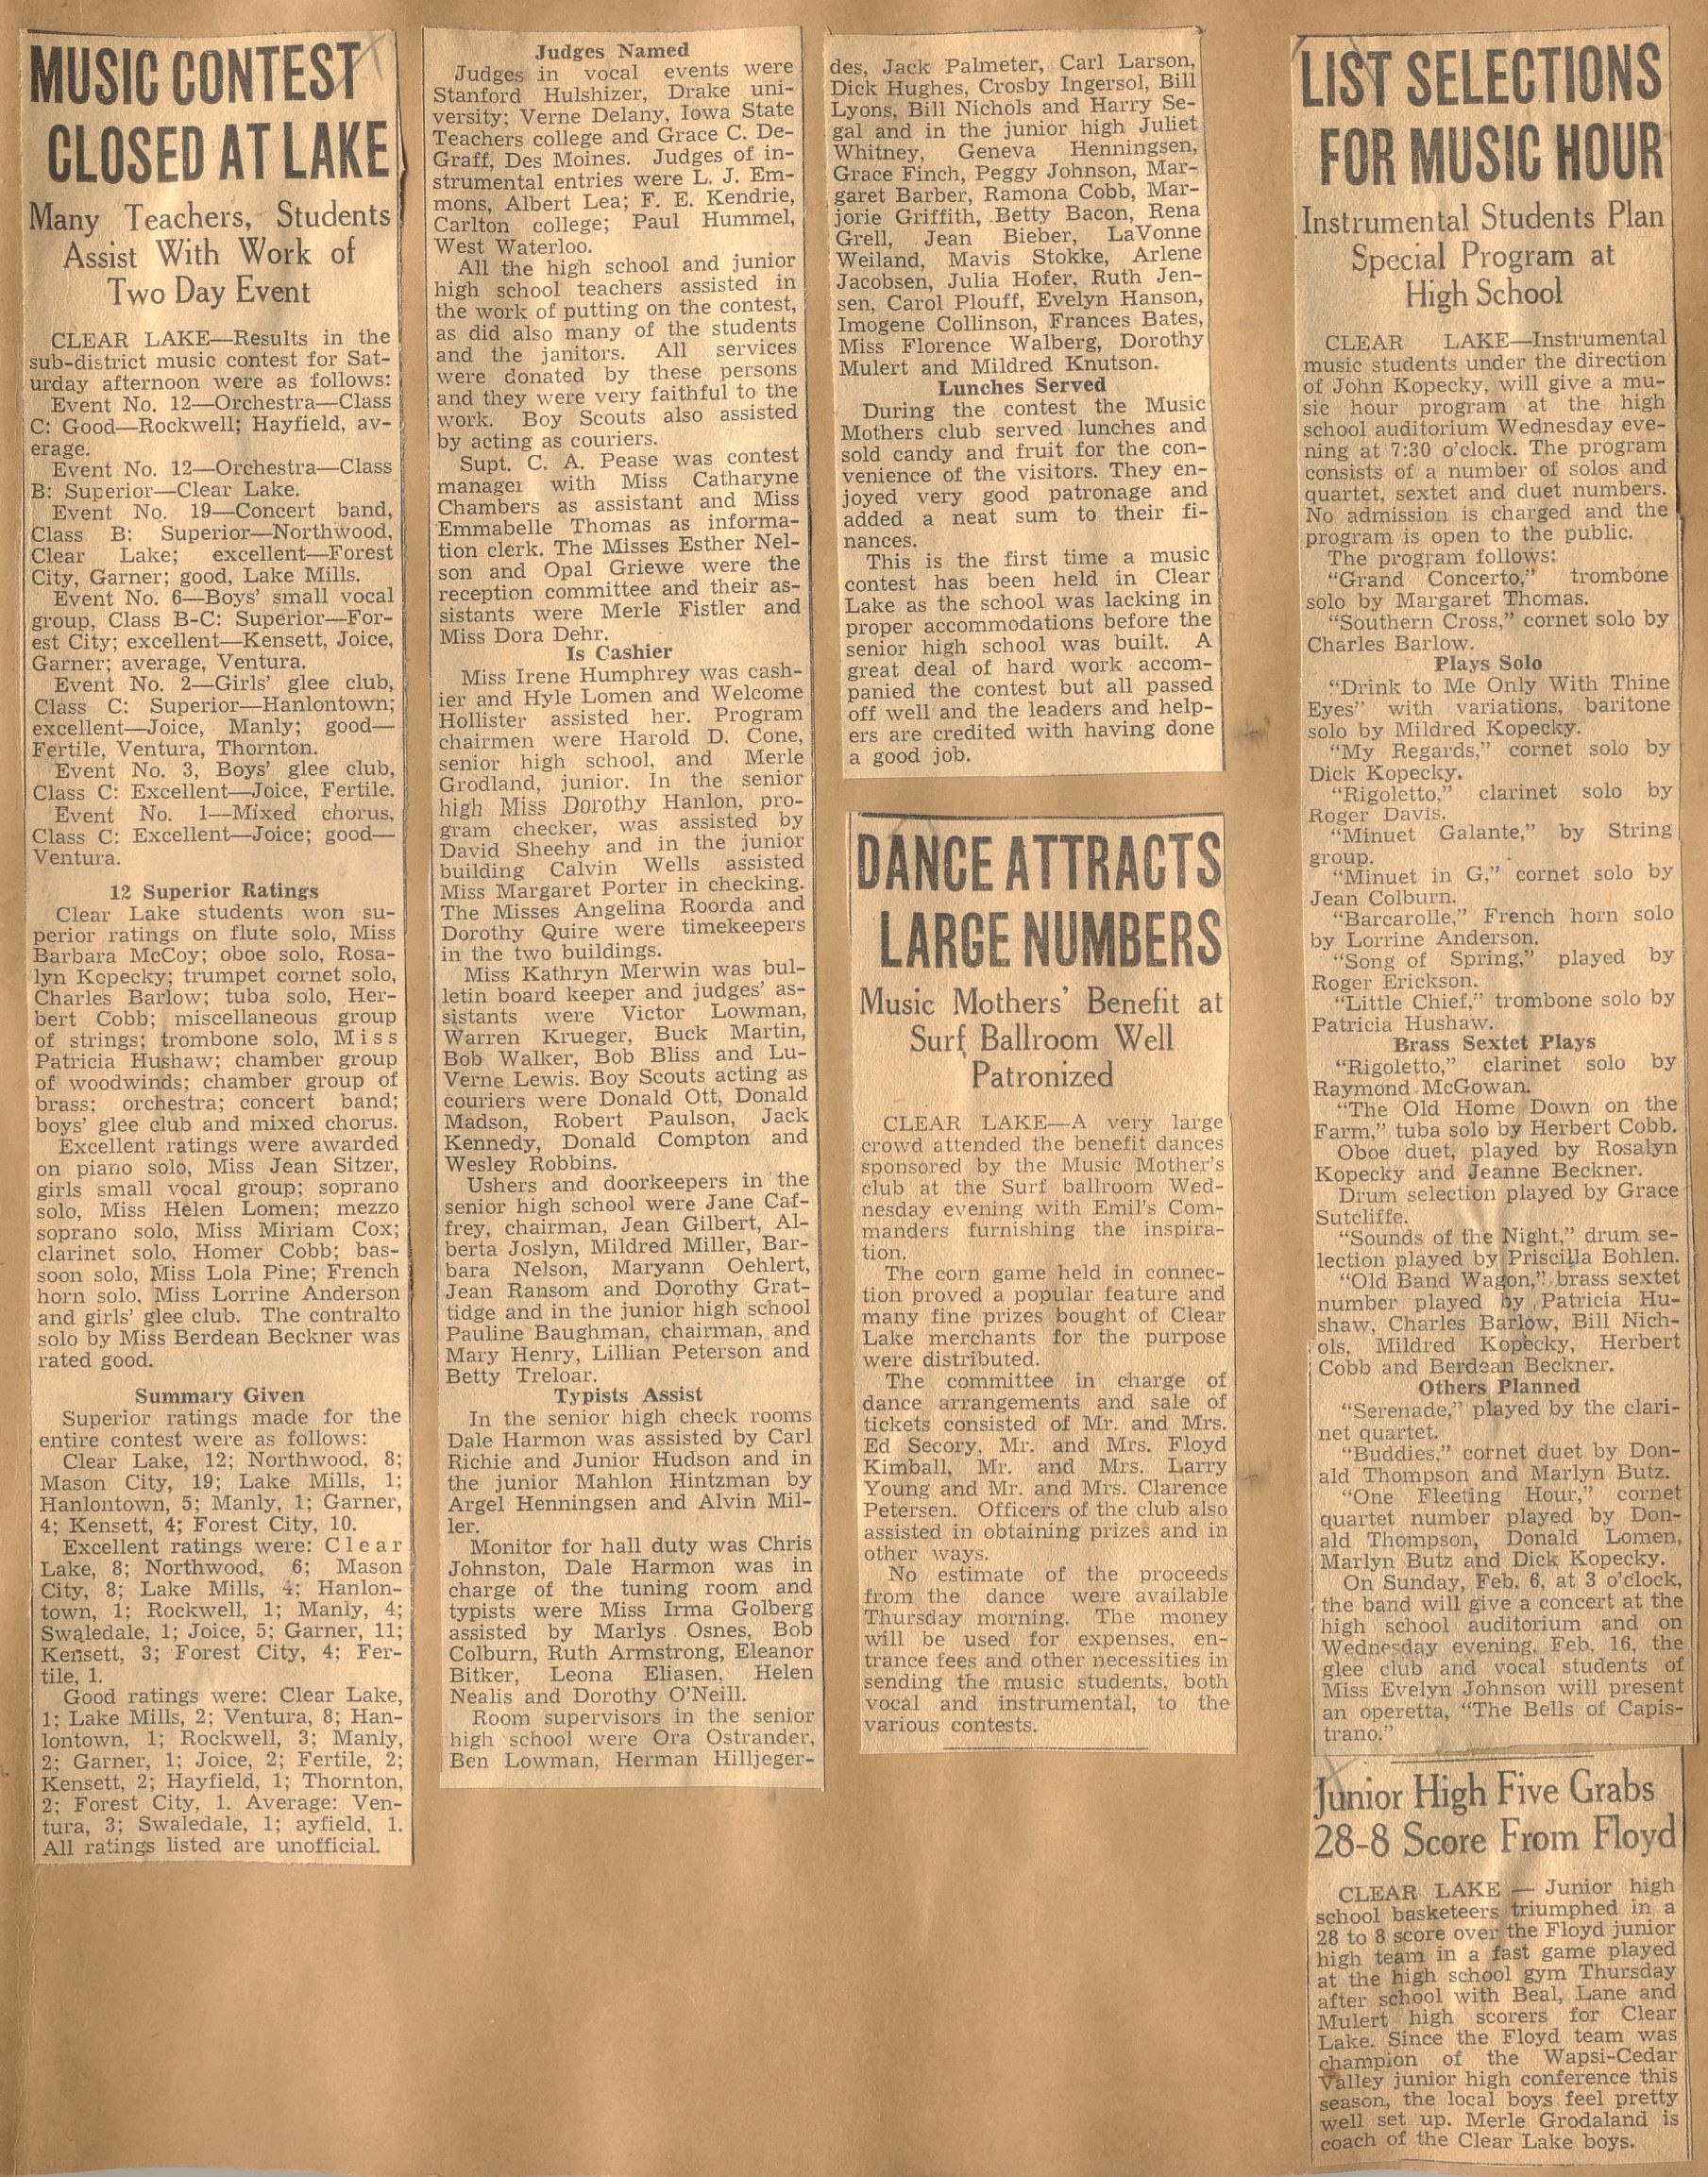 MUSIC CONTEST
CLOSED AT LAKE
Many Teachers, Students
Assist With Work of
Two Day Event
CLEAR LAKE—Results in the
sub-district music contest for Sat-
urday afternoon were as follows:
Event No. 12—Orchestra—Class
C: Good—Rockwell; Hayfield, av-
erage.
Event No. 12—Orchestra—Class
B: Superior—Clear Lake.
Event No. 19—Concert band,
Class B: Superior—Northwood,
Clear Lake; excellent—Forest
City, Garner; good, Lake Mills.
Event No. 6—Boys' small vocal
group, Class B-C: Superior—For-
est City; excellent—Kensett, Joice,
Garner; average, Ventura.
Event No. 2—Girls' glee club,
Class C: Superior—Hanlontown;
excellent—Joice, Manly; good—
Fertile, Ventura, Thornton.
Event No. 3, Boys' glee club,
Class C: Excellent—Joice, Fertile.
Event No. 1—Mixed chorus,
Class C: Excellent—Joice; good—
Ventura.
12 Superior Ratings
Clear Lake students won su-
perior ratings on flute solo, Miss
Barbara McCoy; oboe solo, Rosa-
lyn Kopecky; trumpet cornet solo,
Charles Barlow; tuba solo, Her-
bert Cobb; miscellaneous group
of strings; trombone solo, Miss
Patricia Hushaw; chamber group
of woodwinds; chamber group of
brass; orchestra; concert band;
boys' glee club and mixed chorus.
Excellent ratings were awarded
on piano solo, Miss Jean Sitzer,
girls small vocal group; soprano
solo, Miss Helen Lomen; mezzo
soprano solo, Miss Miriam Cox;
clarinet solo, Homer Cobb; bas-
soon solo, Miss Lola Pine; French
horn solo, Miss Lorrine Anderson
and girls' glee club. The contralto
solo by Miss Berdean Beckner was
rated good.
Summary Given
Superior ratings made for the
entire contest were as follows:
Clear Lake, 12; Northwood, 8;
Mason City, 19; Lake Mills, 1;
Hanlontown, 5; Manly, 1; Garner,
4; Kensett, 4; Forest City, 10.
Excellent ratings were: Clear
Lake, 8; Northwood, 6; Mason
City, 8; Lake Mills, 4; Hanlon-
town, 1; Rockwell, 1; Manly, 4;
Swaledale, 1; Joice, 5; Garner, 11;
Kensett, 3; Forest City, 4; Fer-
tile, 1.
Good ratings were: Clear Lake,
1; Lake Mills, 2; Ventura, 8; Han-
lontown, 1; Rockwell, 3; Manly,
2; Garner, 1; Joice, 2; Fertile, 2;
Kensett, 2; Hayfield, 1; Thornton,
2; Forest City, 1. Average: Ven-
tura, 3; Swaledale, 1; ayfield, 1.
All ratings listed are unofficial.
Judges Named
Judges in vocal events were
Stanford Hulshizer, Drake uni-
versity; Verne Delany, Iowa State
Teachers college and Grace C. De-
Graff, Des Moines. Judges of in-
strumental entries were L. J. Em-
mons, Albert Lea; F. E. Kendrie,
Carlton college; Paul Hummel,
West Waterloo.
All the high school and junior
high school teachers assisted in
the work of putting on the contest,
as did also many of the students
and the janitors. All services
were donated by these persons
and they were very faithful to the
work. Boy Scouts also assisted
by acting as couriers.
Supt. C. A. Pease was contest
manager with Miss Catharyne
Chambers as assistant and Miss
Emmabelle Thomas as informa-
tion clerk. The Misses Esther Nel-
son and Opal Griewe were the
reception committee and their as-
sistants were Merle Fistler and
Miss Dora Dehr.
Is Cashier
Miss Irene Humphrey was cash-
ier and Hyle Lomen and Welcome
Hollister assisted her. Program
chairmen were Harold D. Cone,
senior high school, and Merle
Grodland, junior. In the senior
high Miss Dorothy Hanlon, pro-
gram checker, was assisted by
David Sheehy and in the junior
building Calvin Wells assisted
Miss Margaret Porter in checking.
The Misses Angelina Roorda and
Dorothy Quire were timekeepers
in the two buildings.
Miss Kathryn Merwin was bul-
letin board keeper and judges' as-
sistants were Victor Lowman,
Warren Krueger, Buck Martin,
Bob Walker, Bob Bliss and Lu-
Verne Lewis. Boy Scouts acting as
couriers were Donald Ott, Donald
Madson, Robert Paulson, Jack
Kennedy, Donald Compton and
Wesley Robbins.
Ushers and doorkeepers in the
senior high school were Jane Caf-
frey, chairman, Jean Gilbert, Al-
berta Joslyn, Mildred Miller, Bar-
bara Nelson, Maryann Oehlert,
Jean Ransom and Dorothy Grat-
tidge and in the junior high school
Pauline Baughman, chairman, and
Mary Henry, Lillian Peterson and
Betty Treloar.
Typists Assist
In the senior high check rooms
Dale Harmon was assisted by Carl
Richie and Junior Hudson and in
the junior Mahlon Hintzman by
Argel Henningsen and Alvin Mil-
ler.
Monitor for hall duty was Chris
Johnston, Dale Harmon was in
charge of the tuning room and
typists were Miss Irma Golberg
assisted by Marlys Osnes, Bob
Colburn, Ruth Armstrong, Eleanor
Bitker, Leona Eliasen, Helen
Nealis and Dorothy O'Neill.
Room supervisors in the senior
high school were Ora Ostrander,
Ben Lowman, Herman Hilljeger-
des, Jack Palmeter, Carl Larson,
Dick Hughes, Crosby Ingersol, Bill
Lyons, Bill Nichols and Harry Se-
gal and in the junior high Juliet
Whitney, Geneva Henningsen,
Grace Finch, Peggy Johnson, Mar-
garet Barber, Ramona Cobb, Mar-
jorie Griffith, Betty Bacon, Rena
Grell, Jean Bieber, LaVonne
Weiland, Mavis Stokke, Arlene
Jacobsen, Julia Hofer, Ruth Jen-
sen, Carol Plouff, Evelyn Hanson,
Imogene Collinson, Frances Bates,
Miss Florence Walberg, Dorothy
Mulert and Mildred Knutson.
Lunches Served
During the contest the Music
Mothers club served lunches and
sold candy and fruit for the con-
venience of the visitors. They en-
joyed very good patronage and
added a neat sum to their fi-
nances.
This is the first time a music
contest has been held in Clear
Lake as the school was lacking in
proper accommodations before the
senior high school was built. A
great deal of hard work accom-
panied the contest but all passed
off well and the leaders and help-
ers are credited with having done
a good job.
DANCE ATTRACTS
LARGE NUMBERS
Music Mothers' Benefit at
Surf Ballroom Well
Patronized
CLEAR LAKE—A very large
crowd attended the benefit dances
sponsored by the Music Mother's
club at the Surf ballroom Wed-
nesday evening with Emil's Com-
manders furnishing the inspira-
tion.
The corn game held in connec-
tion proved a popular feature and
many fine prizes bought of Clear
Lake merchants for the purpose
were distributed.
The committee in charge of
dance arrangements and sale of
tickets consisted of Mr. and Mrs.
Ed Secory, Mr. and Mrs. Floyd
Kimball, Mr. and Mrs. Larry
Young and Mr. and Mrs. Clarence
Petersen. Officers of the club also
assisted in obtaining prizes and in
other ways.
No estimate of the proceeds
from the dance were available
Thursday morning. The money
will be used for expenses, en-
trance fees and other necessities in
sending the music students, both
vocal and instrumental, to the
various contests.
LIST SELECTIONS
FOR MUSIC HOUR
Instrumental Students Plan
Special Program at
High School
CLEAR LAKE—Instrumental
music students under the direction
of John Kopecky, will give a mu-
sic hour program at the high
school auditorium Wednesday eve-
ning at 7:30 o'clock. The program
consists of a number of solos and
quartet, sextet and duet numbers.
No admission is charged and the
program is open to the public.
The program follows:
"Grand Concerto," trombone
solo by Margaret Thomas.
"Southern Cross," cornet solo by
Charles Barlow.
Plays Solo
"Drink to Me Only With Thine
Eyes" with variations, baritone
solo by Mildred Kopecky.
"My Regards," cornet solo by
Dick Kopecky.
"Rigoletto," clarinet solo by
Roger Davis.
"Minuet Galante," by String
group.
"Minuet in G," cornet solo by
Jean Colburn.
"Barcarolle," French horn solo
by Lorrine Anderson.
"Song of Spring," played by
Roger Erickson.
"Little Chief," trombone solo by
Patricia Hushaw.
Brass Sextet Plays
"Rigoletto," clarinet solo by
Raymond McGowan.
"The Old Home Down on the
Farm," tuba solo by Herbert Cobb.
Oboe duet, played by Rosalyn
Kopecky and Jeanne Beckner.
Drum selection played by Grace
Sutcliffe.
"Sounds of the Night," drum se-
lection played by Priscilla Bohlen.
"Old Band Wagon," brass sextet
number played by Patricia Hu-
shaw, Charles Barlow, Bill Nich-
ols, Mildred Kopecky, Herbert
Cobb and Berdean Beckner.
Others Planned
"Serenade," played by the clari-
net quartet.
"Buddies," cornet duet by Don-
ald Thompson and Marlyn Butz.
"One Fleeting Hour," cornet
quartet number played by Don-
ald Thompson, Donald Lomen,
Marlyn Butz and Dick Kopecky.
On Sunday, Feb. 6, at 3 o'clock,
the band will give a concert at the
high school auditorium and on
Wednesday evening, Feb. 16, the
glee club and vocal students of
Miss Evelyn Johnson will present
an operetta, "The Bells of Capis-
trano."
Junior High Five Grabs
28-8 Score From Floyd
CLEAR LAKE — Junior high
school basketeers triumphed in a
28 to 8 score over the Floyd junior
high team in a fast game played
at the high school gym Thursday
after school with Beal, Lane and
Mulert high scorers for Clear
Lake. Since the Floyd team was
champion of the Wapsi-Cedar
Valley junior high conference this
season, the local boys feel pretty
well set up. Merle Grodaland is
coach of the Clear Lake boys.